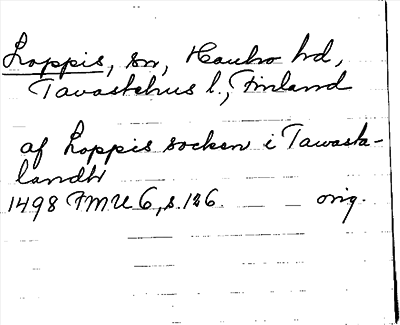 Loppis, sn, Hauho hd,
Tavastehus l., Finland
af Loppis socken i Tawasta-
landh
1498 FMU 6, s. 126. orig.